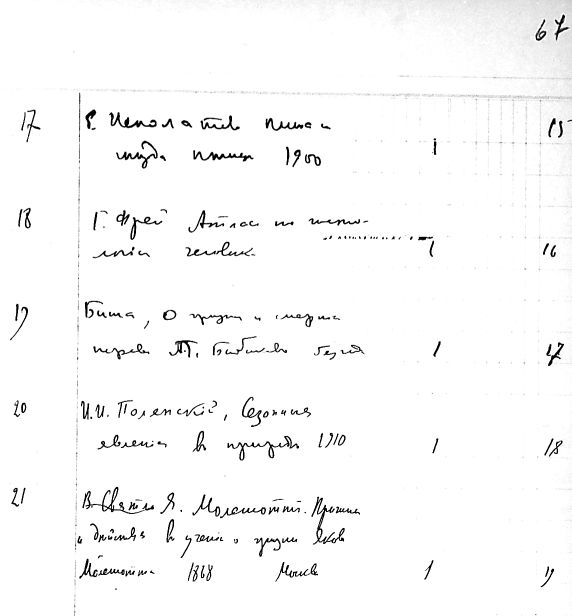 67
17 Г. Ипполитов Пища и 15
птица 1900 1
18 Г. Фрей Атлас по гисто-
логіи человека 1 16
19 Биша, О жизни и смерти
перев. П. Бибикова 1 17
20 И.И. Полянский, Сезонныя
явленія въ природѣ 1910 1 18
21 Я. Молешоттъ. Причины
и дѣйствія въ ученіи о жизни Якова
Молешотта 1868 Москва 1 19